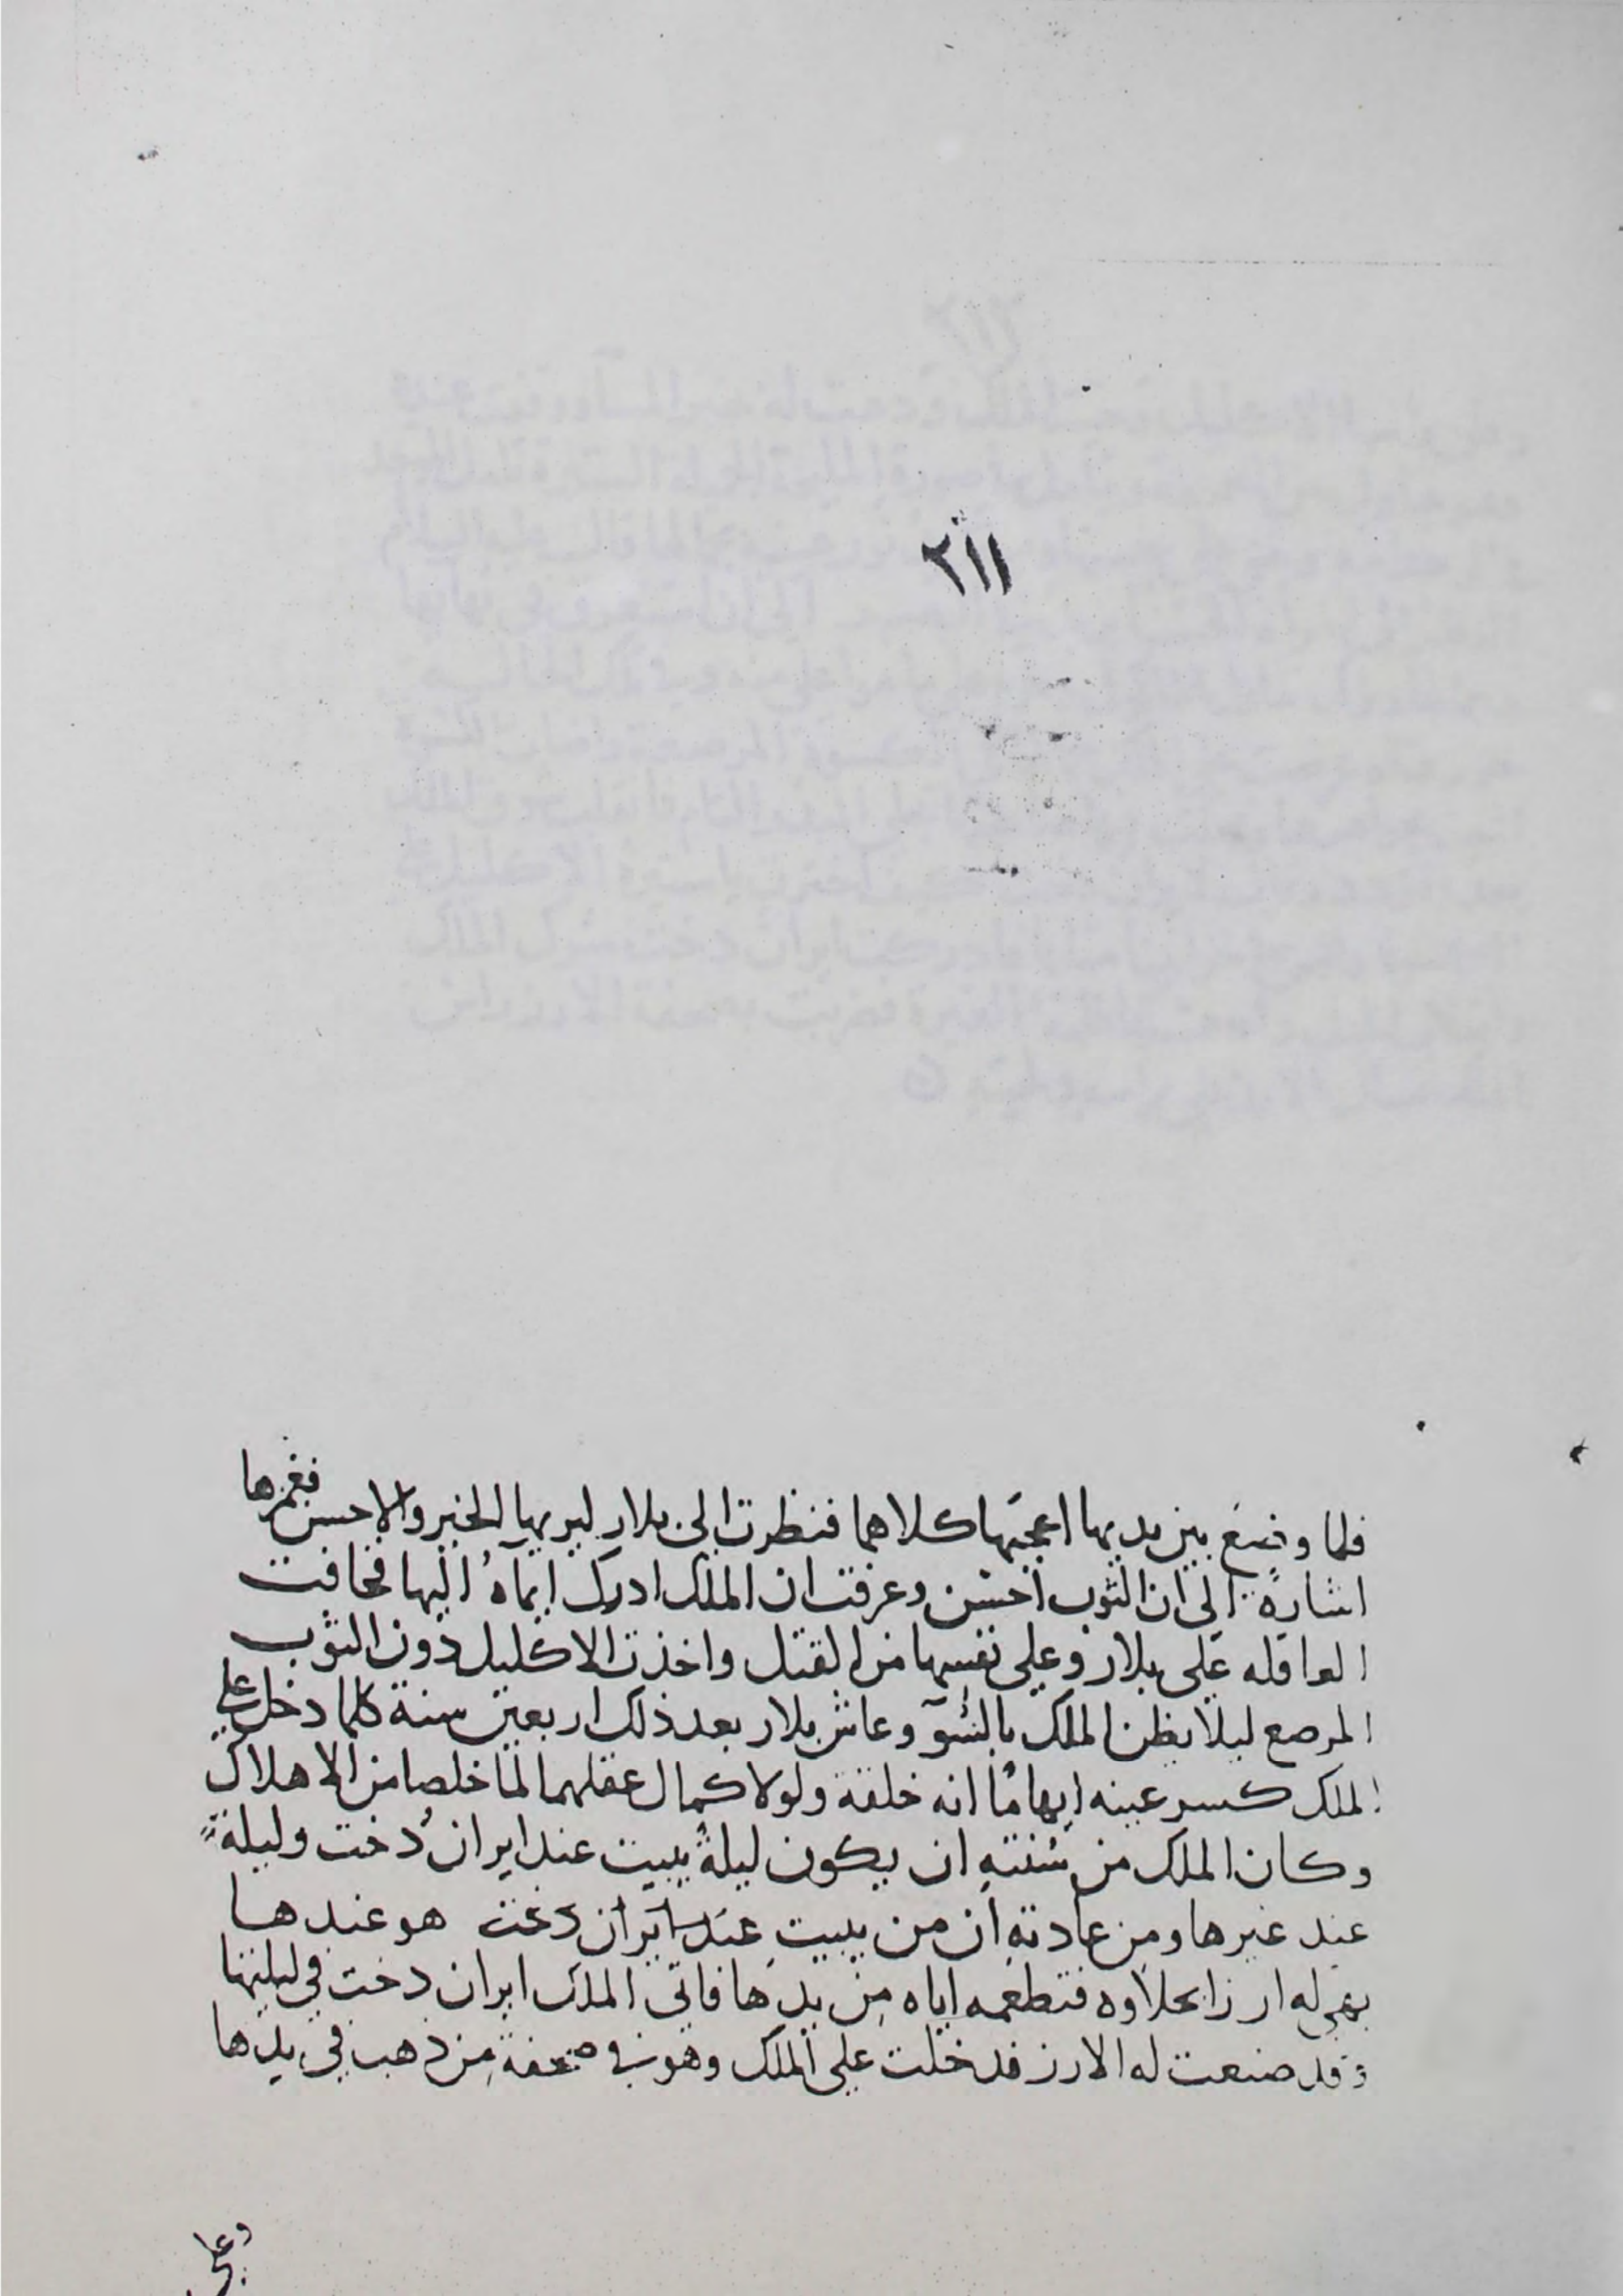 ٢١١
فلما وضع بين يديها اعجبها كلاهما فنظرت الى بلار ليريها الخير والاحسن فغمزها
اشارة الى ان الثوب احسن وعرفت ان الملك ادرك ايمآه اليها فخافت
العاقله على بلار وعلى نفسها من القتل واخذت الاكليل دون الثوب
المرصع ليلا يظن الملك بالسّوٓ وعاش بلار بعد ذلك اربعين سنة كلما دخل على
الملك كسر عينه ايهامًا انه خلقة ولولا كمال عقلهما لما خلصا من الاهلاك
وكان الملك من سُنتهِ ان يكون ليلةً يبيت عند ايران دُخت وليلةً
عند غيرها ومن عادتهِ ان من يبيت عند ايران دخت هو عندها
يهى له ارزا بحلاوه فتطعمه اياه مِن يدها فاتى الملك ايران دخت في ليلتها
وقد صنعت له الارز فدخلت على الملك وهو في صحفة مِن ذهب في يدها
وعلى